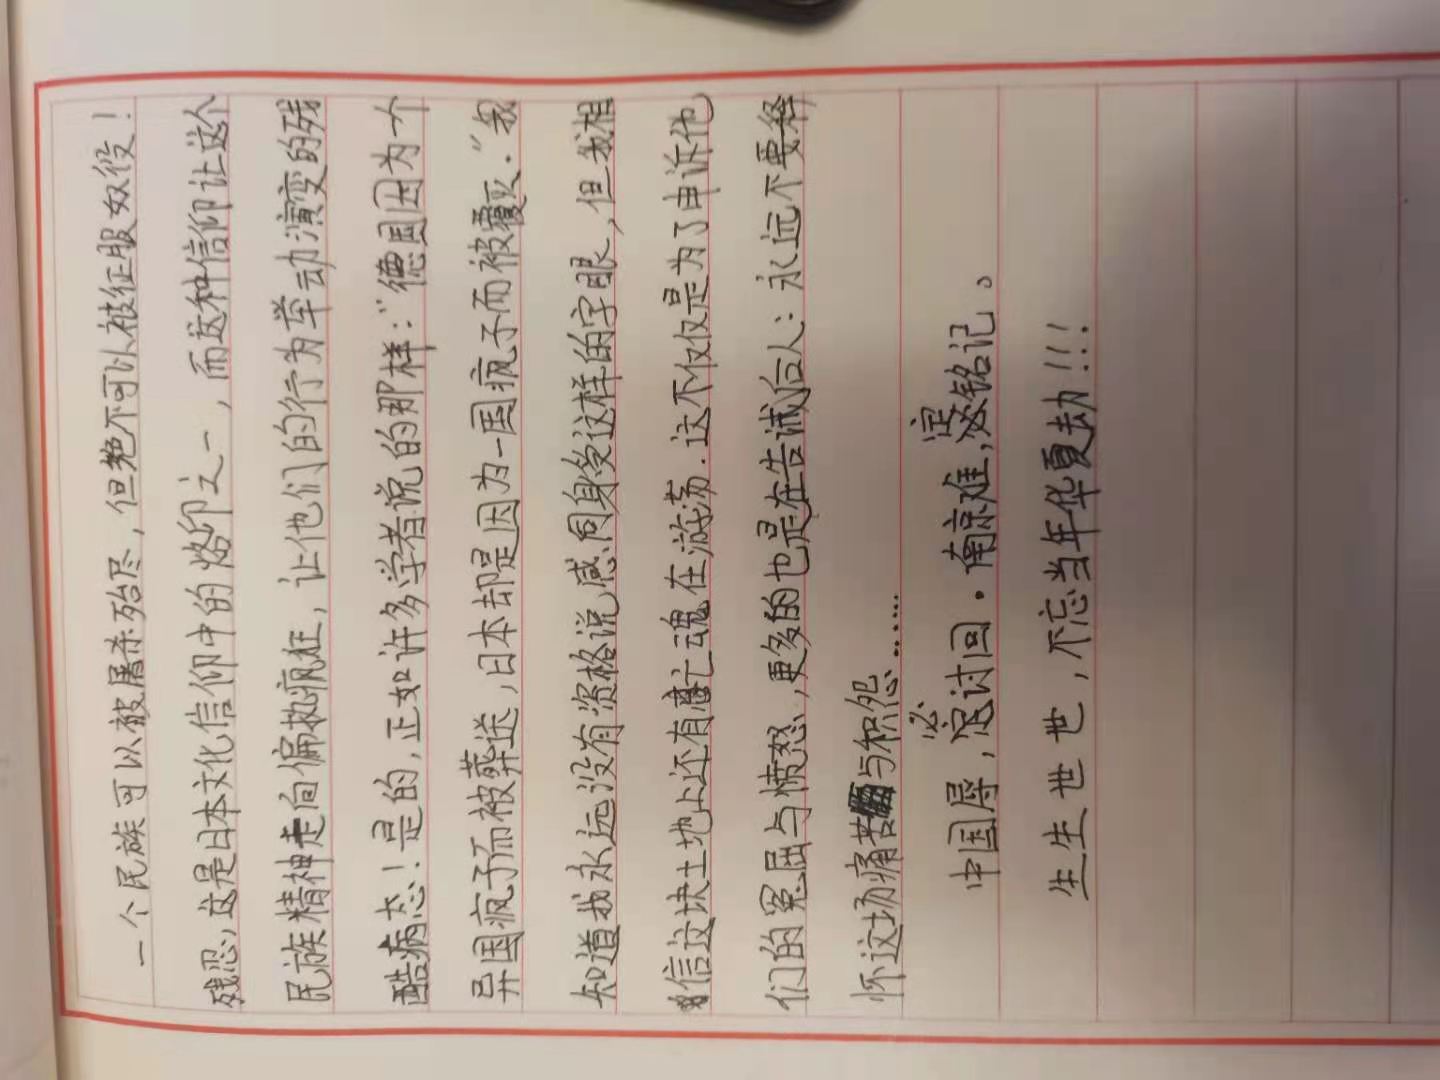 一个民族可以被屠杀殆尽，但绝不可以被征服奴役！
残忍，这是日本文化信仰中的烙印之一，而这种信仰让这个
民族精神走向偏执疯狂，让他们的行为举动演变的残
酷病态！是的，正如许多学者说的那样：“德国因为一个
异国疯子而被葬送，日本却是因为一国疯子而被覆灭．”我
知道我永远没有资格说感同身受这样的字眼，但我相
信这块土地上还有亡魂在游荡．这不仅仅是为了申诉他
们的冤屈与愤怒，更多的也是在告诫后人：永远不要释
怀这场痛苦与积怨……
中国辱，必讨回．南京难，定铭记。
生生世世，不忘当年华夏劫!!!